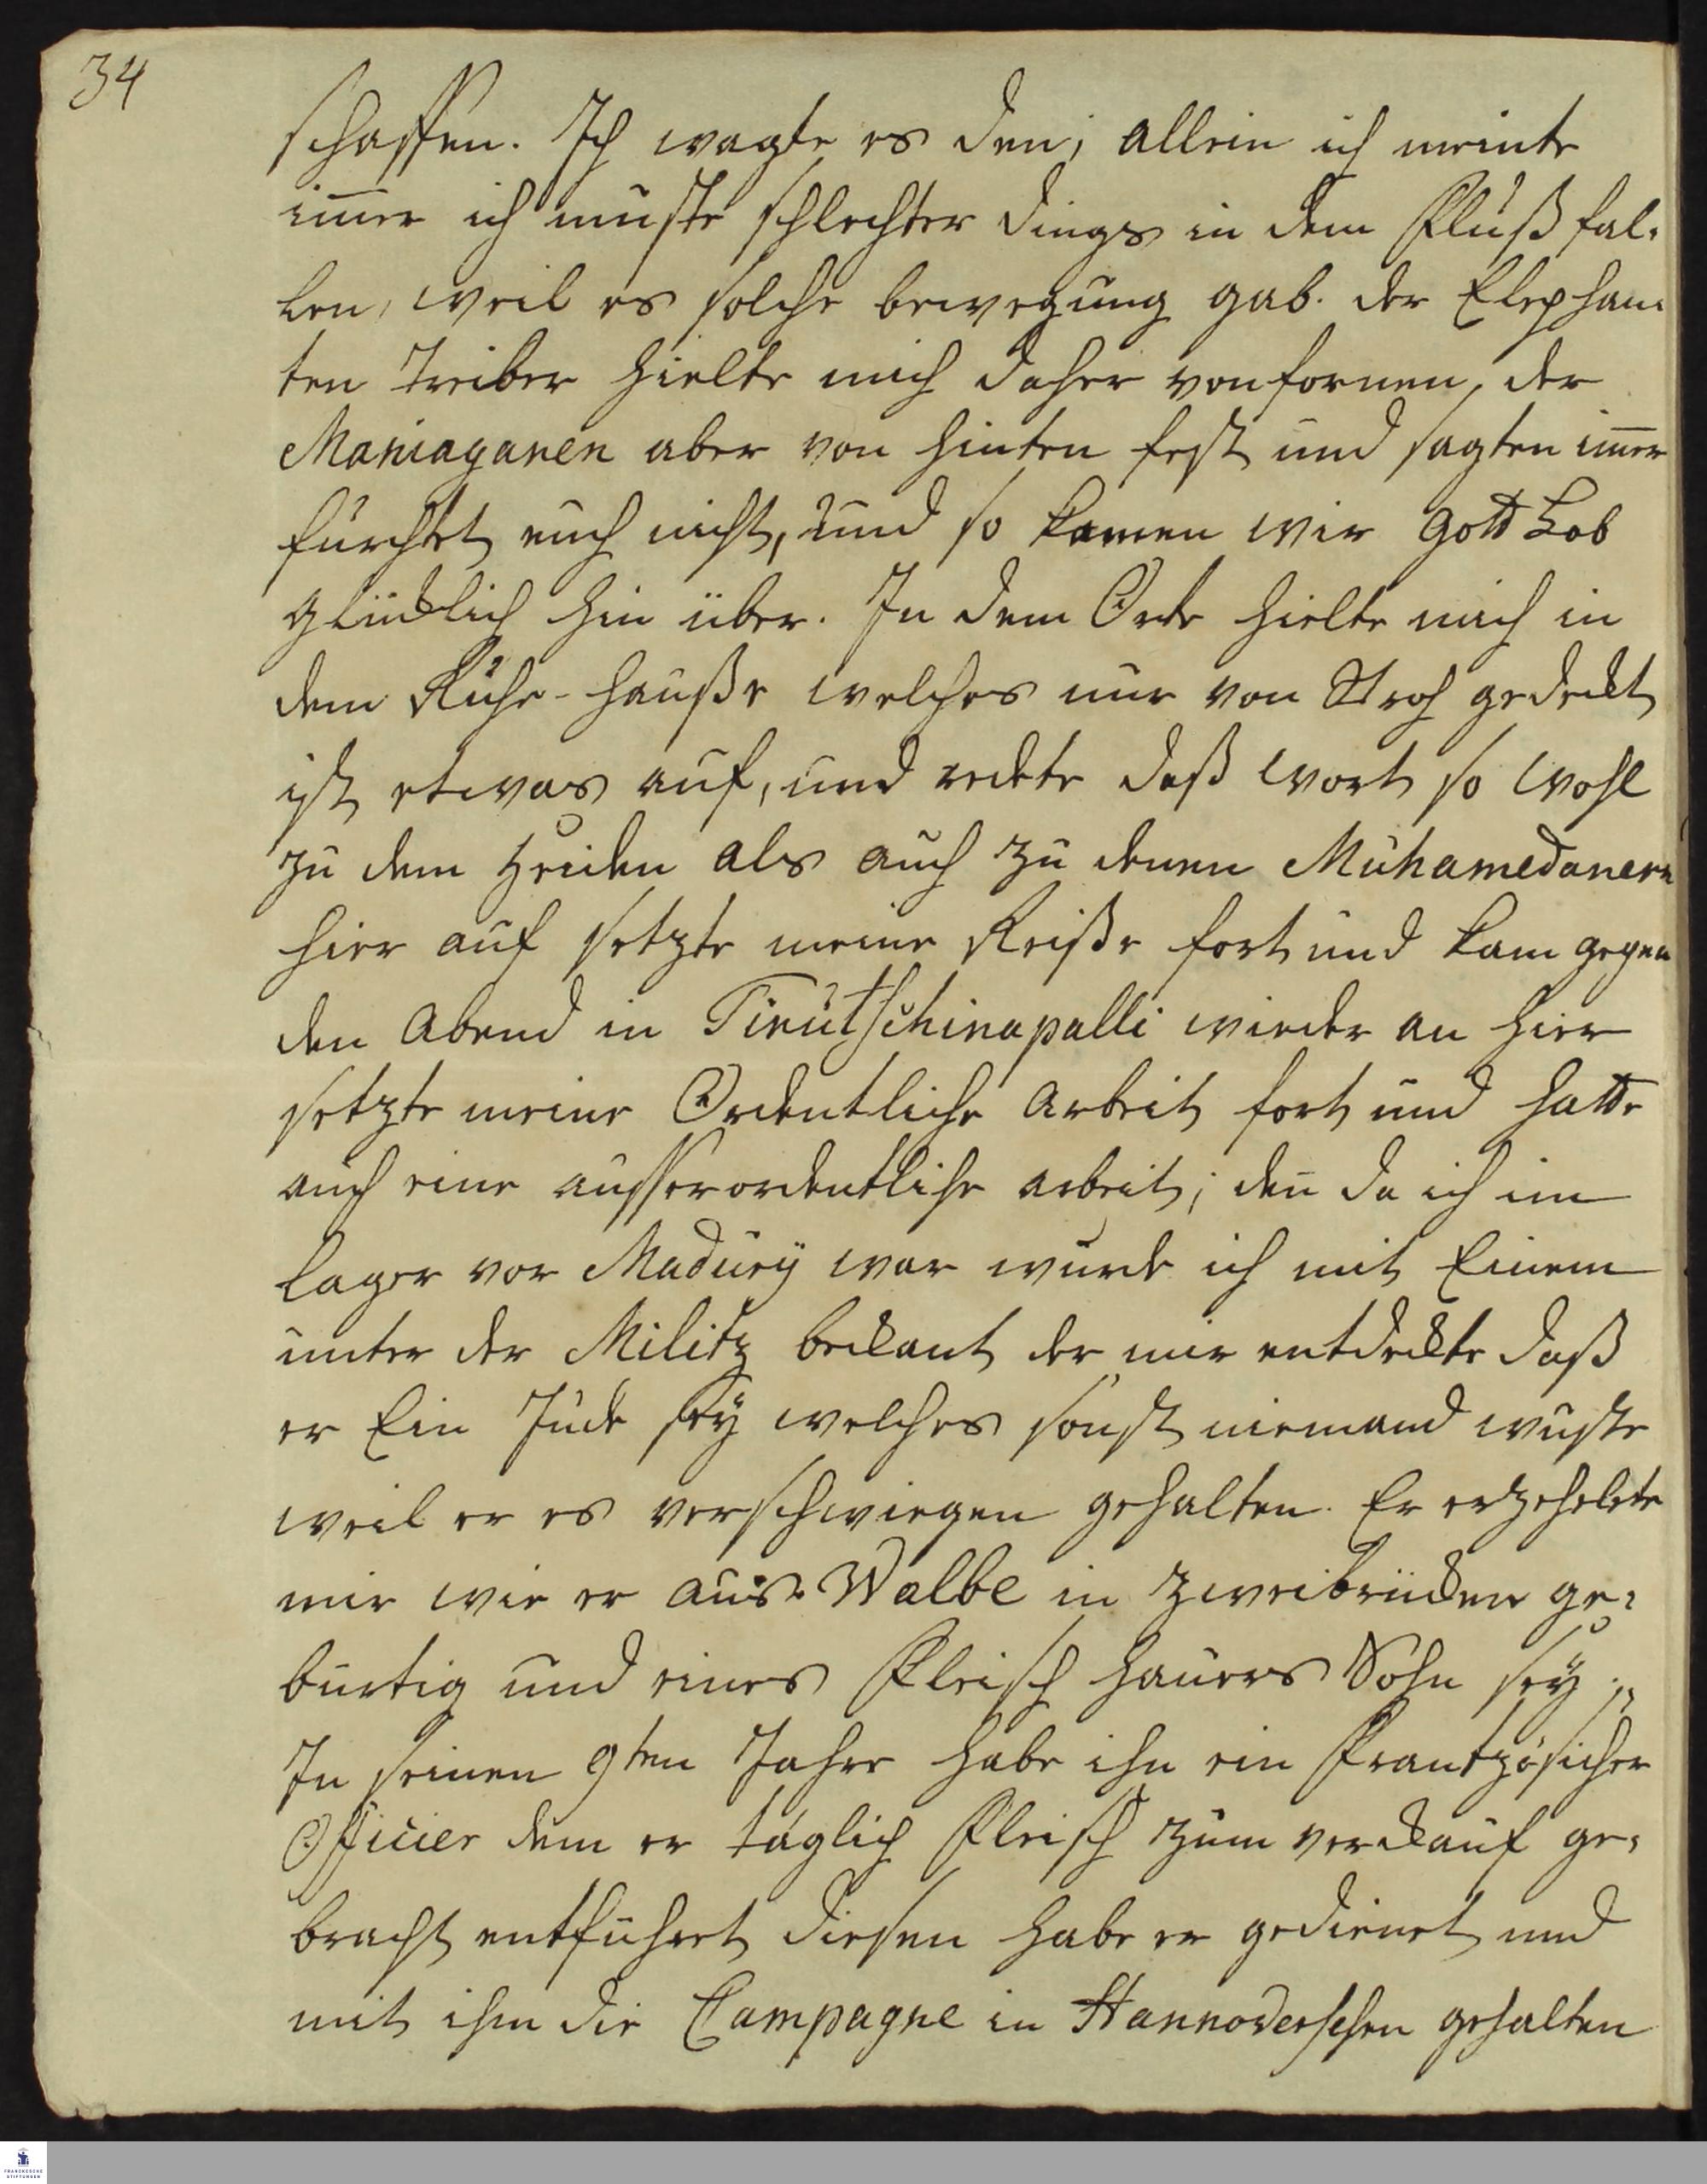 34
schaffen. Ich wagte es den; allein ich meinte
im̅er ich muste schlechter dings in dem Fluß fal-
len, weil es solche bewegung gab. der Elephan-
ten treiber hielte mich daher von fornen, der
Maniagaren aber von hinten fest und sagten im̅er
fürchtet euch nicht, und so kamen wir Gott Lob
glücklich hin über. In dem Orte hielte mich in
dem Ruhe-Hauße welches nur von Stroh gedeckt
ist etwas auf, und redete daß Wort so wohl
zu dem Heiden als auch zu denen Muhamedanern
hier auf setzte meine Reiße fort und kam gegen
den Abend in Tirutschinapalli wieder an hier
setzte meine Ordentliche Arbeit fort und hatte
auch eine ausserordentliche arbeit; den̅ da ich im
Lager vor Madurey war wurde ich mit Einem
unter der Militz beckant der mir entdeckte daß
er Ein Jude sey welches sonst niemand wuste
weil er es verschwiegen gehalten. Er erzehelete
mir wie er aus Walbe in Zweibrücken ge-
burtig und eines Fleisch hauers Sohn sey.
In seinen 9ten Jahre habe ihn ein Frantzösicher
Officier dem er täglich Fleisch zum verckauf ge-
bracht entführet diesen habe er gedienet und
mit ihm die Campagne in Hannoverschen gehalten
FRANCKESCHE
STIFTUNGEN